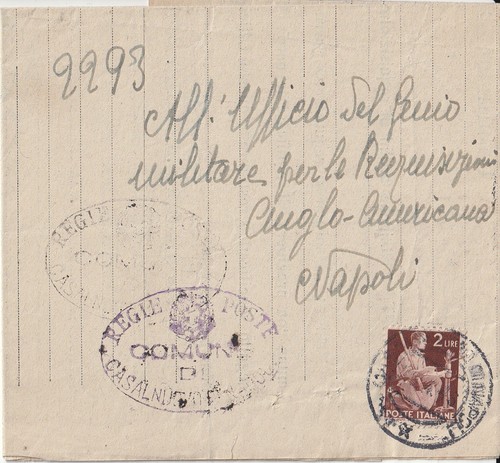 2293
All'Ufficio del Genio
militare per le Requisizioni
Anglo-Americana
Napoli
REGIE POSTE
CASALNU
REGIE POSTE
COMUNE
DI
CASALNUOVO
2 LIRE
POSTE ITALIANE